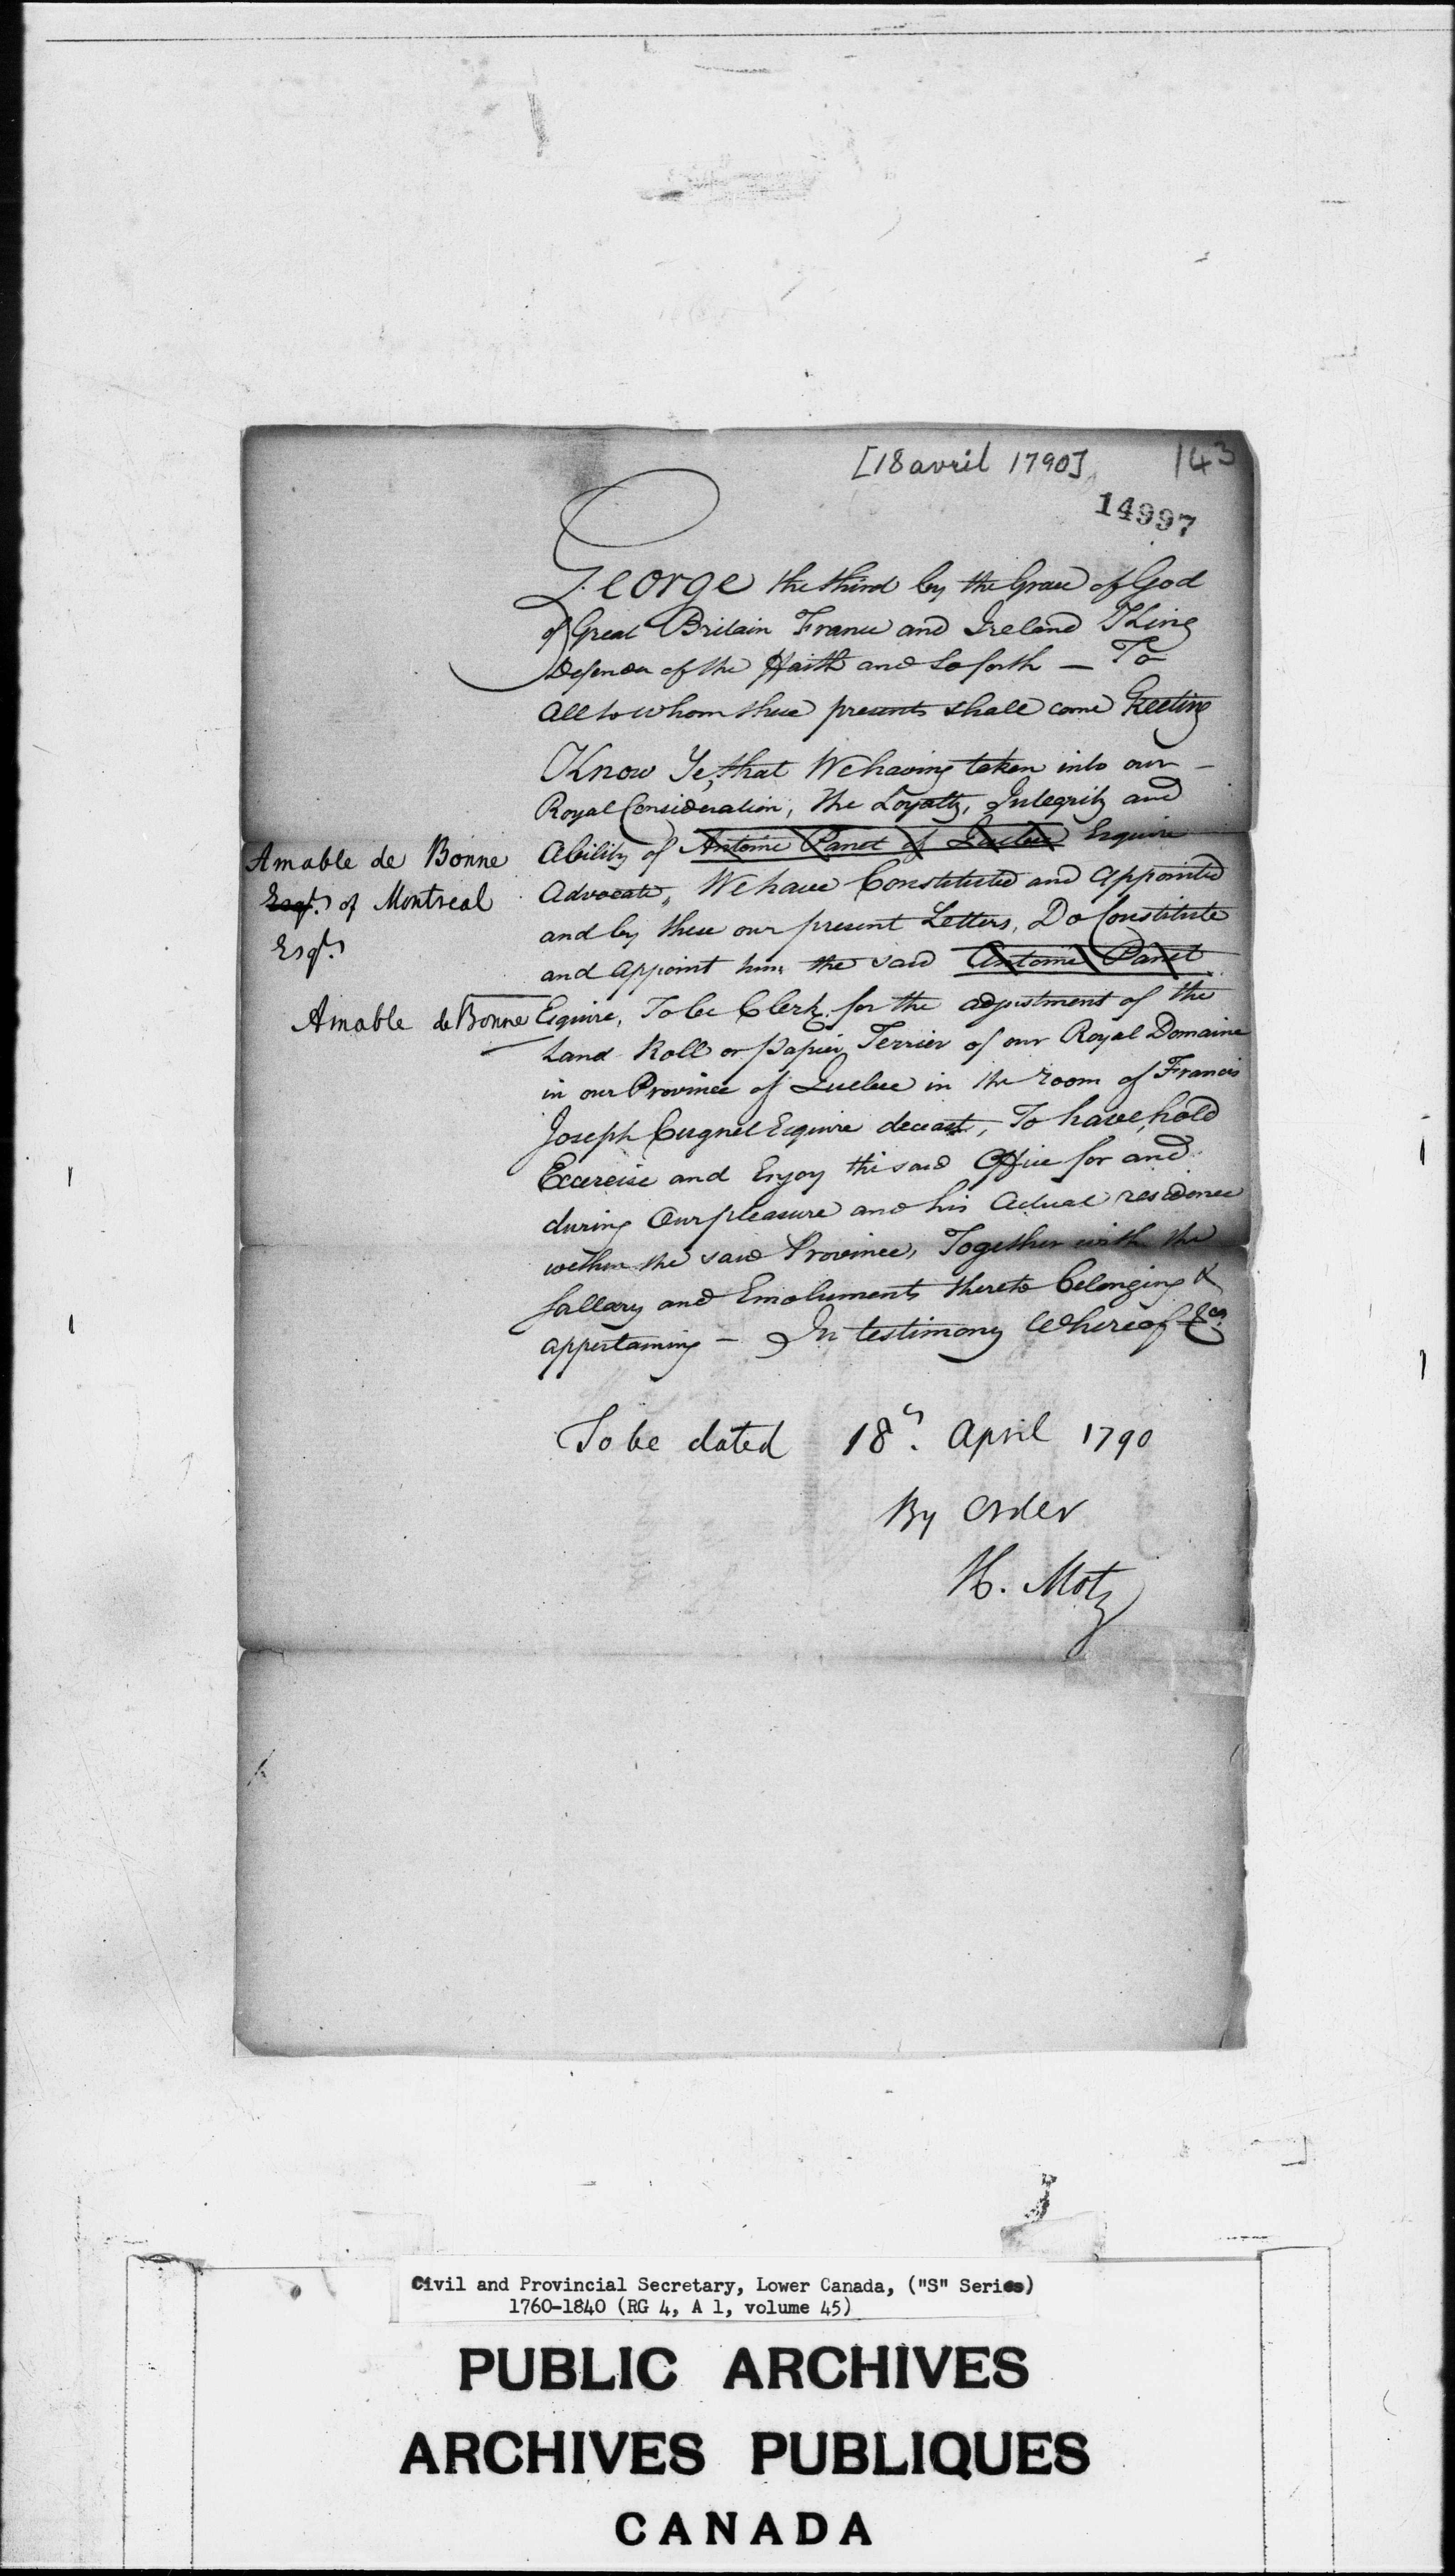 [18 avril 1790]
143
14997
George the third by the Grace of God
of Great Britain France and Ireland King
Defender of the Faith and so forth — To
All to whom these presents shall come Greeting
Know Ye, that We having taken into our —
Royal Consideration, the Loyalty, Integrity and
Ability of Antoine Panet of Quebec Esquire
Amable de Bonne
Esqr. of Montreal
Esqr.
Advocate, We have Constituted and Appointed
and by these our present Letters, Do Constitute
and Appoint him the said Antoine Panet
Amable de Bonne
Esquire, To be Clerk for the adjustment of the
Land Roll or papier Terrier of our Royal Domaine
in our Province of Quebec in the room of Francis
Joseph Cugnet Esquire deceast, To have, hold
Excercise and Enjoy the said Office for and
during Our pleasure and his Actual residence
within the said Province, Together with the
Sallary and Emoluments thereto belonging &
appertaining — In testimony Whereof &ca.
To be dated 18th. April 1790
By Order
H. Motz
Civil and Provincial Secretary, Lower Canada, ("S" Series)
1760-1840 (RG 4, A 1, volume 45)
PUBLIC ARCHIVES
ARCHIVES PUBLIQUES
CANADA